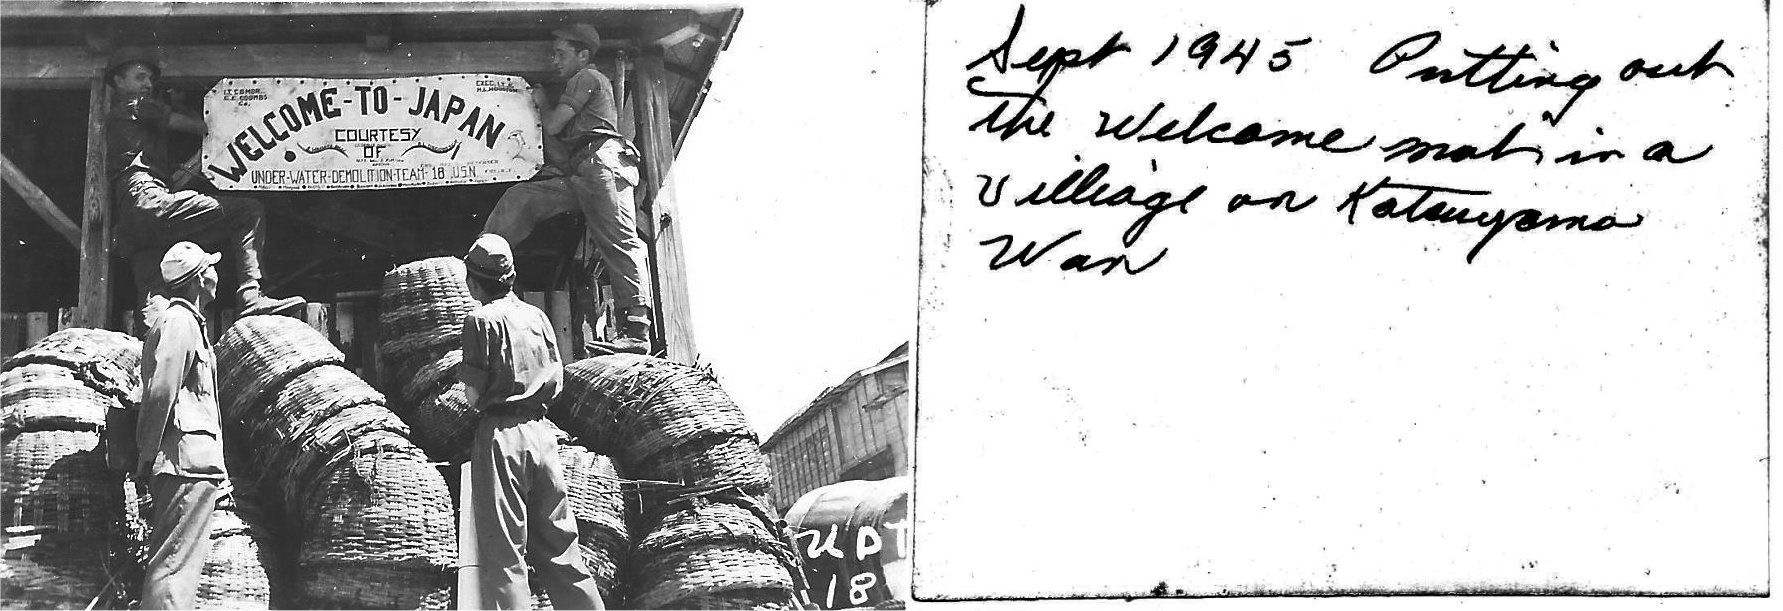 LT. COMDR.
C.E. COOMBS
Co.
WELCOME-TO-JAPAN
COURTESY
OF
UNDER-WATER-DEMOLITION-TEAM-18 U.S.N.
UDT
18
Sept 1945 Putting out
the Welcome mat in a
Village on Katsuyama
Wan